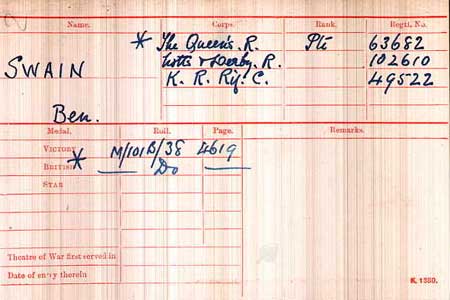 Name. Corps. Rank. Regtl. No.
* The Queen's. R. Pte 63682
SWAIN Notts & Derby. R. 102610
K. R. Rif. C. 49522
Ben.
Medal. Roll. Page. Remarks.
VICTORY M/101B/38 4619
* BRITISH Do
STAR
Theatre of War first served in
Date of entry therein
K. 1380.